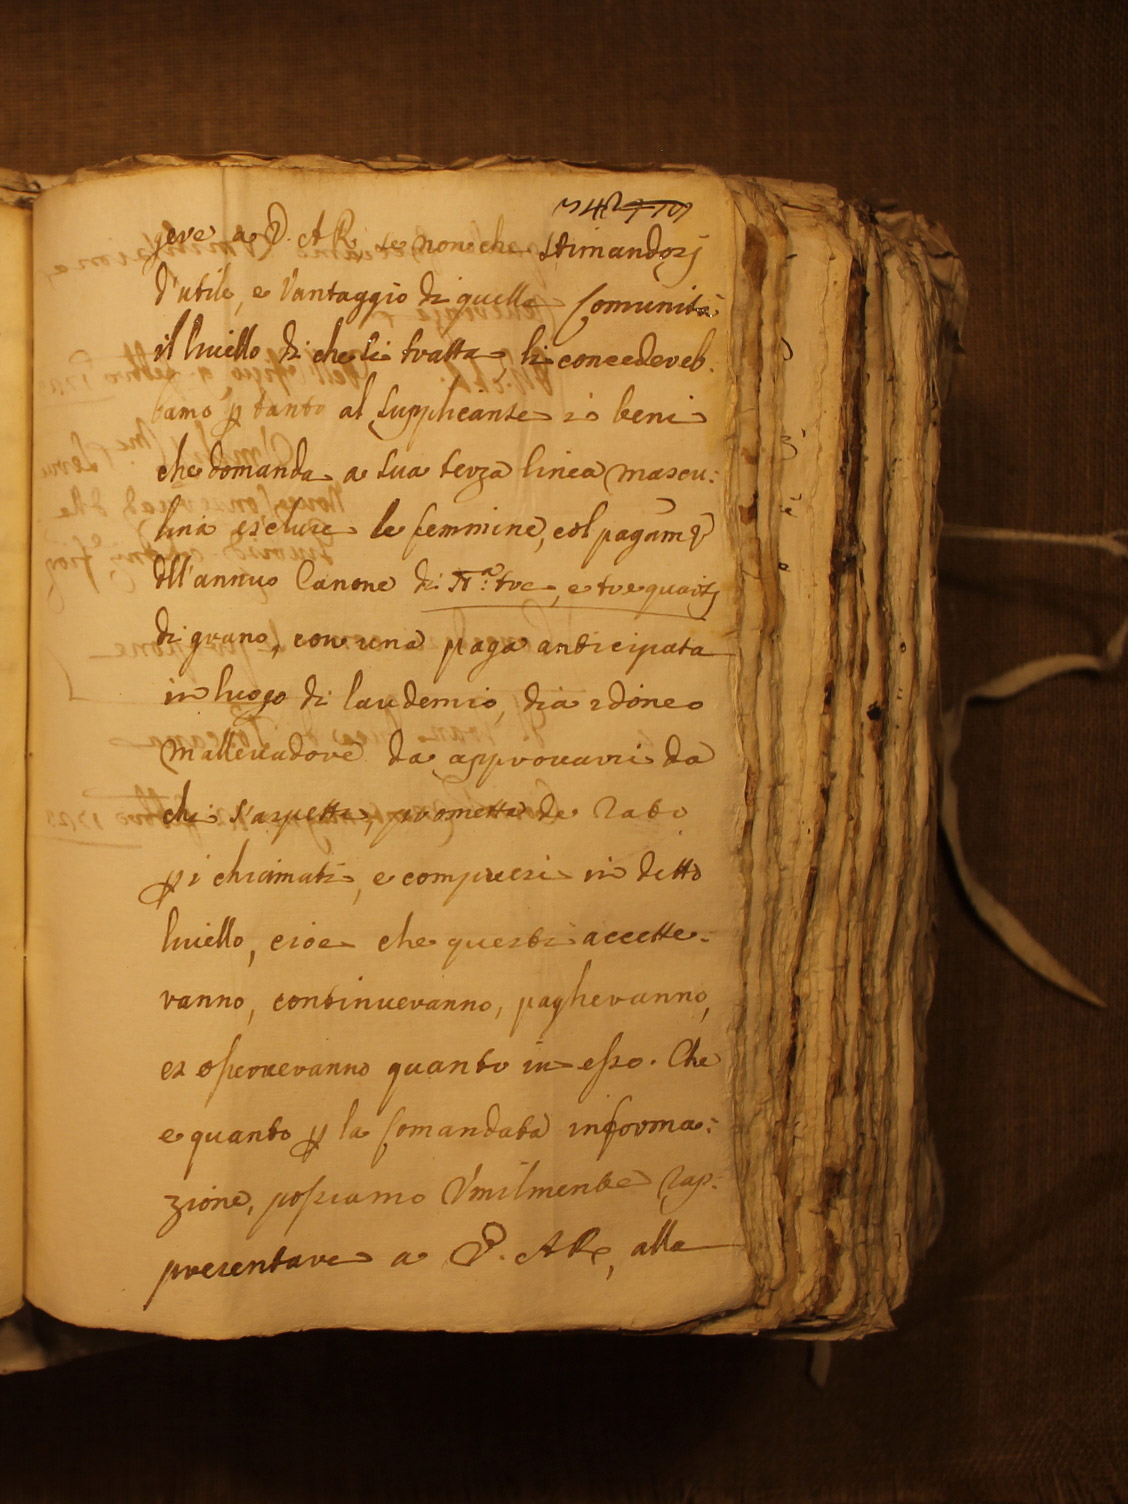 gere a V. A. R. se non che stimandosi
d'utile, e Vantaggio di quella Comunità
il livello di che si tratta, li concedereb.
bamo p tanto al supplicante i beni
che domanda a sua terza linea mascu:
lina escluse le femmine, col pagam.to
dell'annuo Canone di st.a tre, e tre quarti
di grano, con una paga anticipata
in luogo di laudemio, dia idoneo
Mallevadore da approvarsi da
chi s'aspetta, prometta de rato
p i chiamati, e compresi in detto
livello, cioè che questi accette:
ranno, continueranno, pagheranno,
et osserveranno quanto in esso. Che
e quanto p la Comandata informa:
zione, possiamo Umilmente rap:
presentare a V. A. R., alla